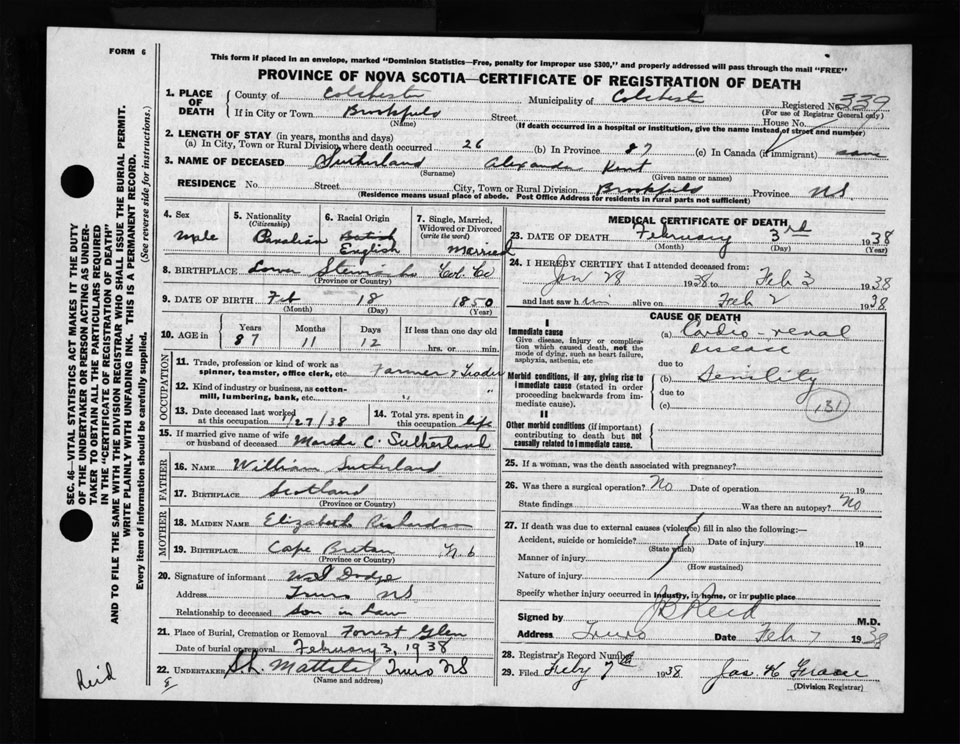 FORM 6
This form if placed in an envelope, marked "Dominion Statistics—Free, penalty for improper use $300," and properly addressed will pass through the mail "FREE"
PROVINCE OF NOVA SCOTIA—CERTIFICATE OF REGISTRATION OF DEATH
1. PLACE OF DEATH County of Colchester Municipality of Colchester Registered No. 339
(For use of Registrar General only)
If in City or Town Brookfield Street House No.
(Name) (If death occurred in a hospital or institution, give the name instead of street and number)
2. LENGTH OF STAY (in years, months and days)
(a) In City, Town or Rural Division where death occurred 26 (b) In Province 87 (c) In Canada (if immigrant) same
3. NAME OF DECEASED Sutherland Alexander Kent
(Surname) (Given name or names)
RESIDENCE No. Street City, Town or Rural Division Brookfield Province NS
(Residence means usual place of abode. Post Office Address for residents in rural parts not sufficient)
4. Sex Male
5. Nationality (Citizenship) Canadian
6. Racial Origin British English
7. Single, Married, Widowed or Divorced (write the word) Married
8. BIRTHPLACE Lower Col. Co
(Province or Country)
9. DATE OF BIRTH Feb 18 1850
(Month) (Day) (Year)
10. AGE in Years 87 Months 11 Days 12 If less than one day old hrs. or min.
OCCUPATION
11. Trade, profession or kind of work as spinner, teamster, office clerk, etc. Farmer & Trader
12. Kind of industry or business, as cotton-mill, lumbering, bank, etc. " "
13. Date deceased last worked at this occupation 1/27/38
14. Total yrs. spent in this occupation life
15. If married give name of wife or husband of deceased C. Sutherland
FATHER
16. NAME William Sutherland
17. BIRTHPLACE Scotland
(Province or Country)
MOTHER
18. MAIDEN NAME Elizabeth Richardson
19. BIRTHPLACE Cape Breton
(Province or Country)
20. Signature of informant Dodge
Address Truro NS
Relationship to deceased Son in Law
21. Place of Burial, Cremation or Removal Forrest Glen
Date of burial or removal February 3, 1938
22. UNDERTAKER Truro NS
(Name and address)
MEDICAL CERTIFICATE OF DEATH
23. DATE OF DEATH February 3rd 1938
(Month) (Day) (Year)
24. I HEREBY CERTIFY that I attended deceased from:
Jan 28 1938 to Feb 3 1938
and last saw him alive on Feb 2 1938
CAUSE OF DEATH
I
Immediate cause
Give disease, injury or complication which caused death, not the mode of dying, such as heart failure, asphyxia, asthenia, etc
(a) Cardio-renal disease
due to
Morbid conditions, if any, giving rise to immediate cause (stated in order proceeding backwards from immediate cause).
(b) Senility
due to
(c)
131
II
Other morbid conditions (if important) contributing to death but not causally related to immediate cause.
25. If a woman, was the death associated with pregnancy?
26. Was there a surgical operation? No Date of operation 19
State findings Was there an autopsy? No
27. If death was due to external causes (violence) fill in also the following:—
Accident, suicide or homicide? Date of injury 19
(State which)
Manner of injury
(How sustained)
Nature of injury
Specify whether injury occurred in industry, in home, or in public place
Signed by J B Reid M.D.
Address Truro Date Feb 7 1938
28. Registrar's Record Number
29. Filed Feb 7 1938 Jas. H
(Division Registrar)
SEC. 46—VITAL STATISTICS ACT MAKES IT THE DUTY
OF THE UNDERTAKER OR PERSON ACTING AS UNDER-
TAKER TO OBTAIN ALL THE PARTICULARS REQUIRED
IN THE "CERTIFICATE OF REGISTRATION OF DEATH"
AND TO FILE THE SAME WITH THE DIVISION REGISTRAR WHO SHALL ISSUE THE BURIAL PERMIT.
WRITE PLAINLY WITH UNFADING INK. THIS IS A PERMANENT RECORD.
Every item of information should be carefully supplied. (See reverse side for instructions.)
Reid